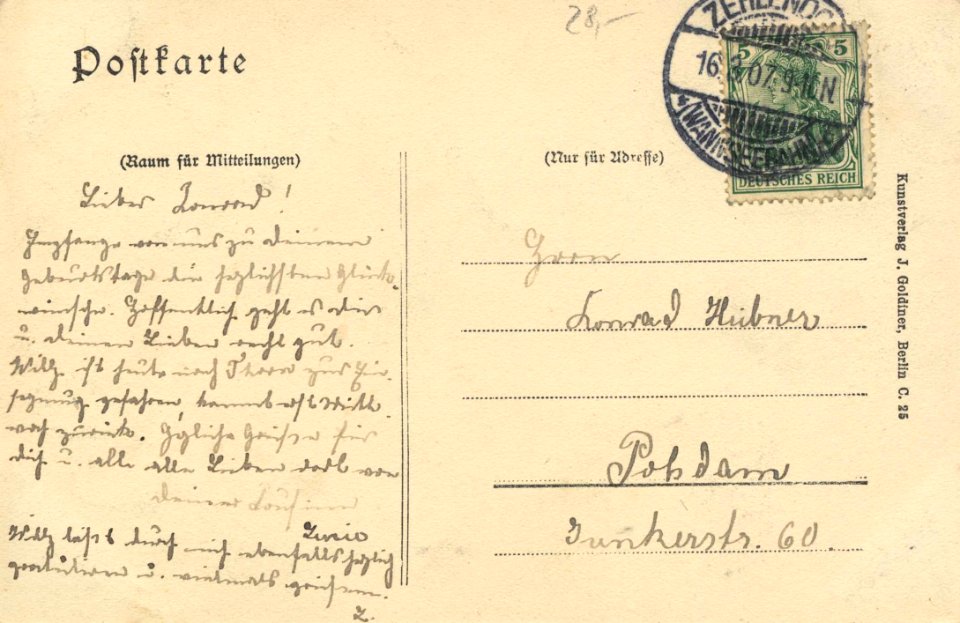 28,-
Postkarte
ZEHLENDO
16.3.07. 9-10N
* (WANNSEEBAHN)
5 5
DEUTSCHES REICH
(Raum für Mitteilungen)
(Nur für Adresse)
Lieber Konrad!
Empfange von uns zu deinem
Geburtstage die herzlichsten Glück-
wünsche. Hoffentlich geht es dir
u. deinen Lieben recht gut.
Willy ist heute nach zur Ein-
segnung gefahren, kommt erst Mittw.
noch zurück. Hzliche Grüße für
dich u. alle alle Lieben dort von
deiner Cousine
Willy läßt durch mich ebenfalls herzlich
gratulieren u. vielmals grüßen.
Herrn
Konrad Hübner
Potsdam
Junkerstr. 60.
Kunstverlag J. Goldiner, Berlin C. 25